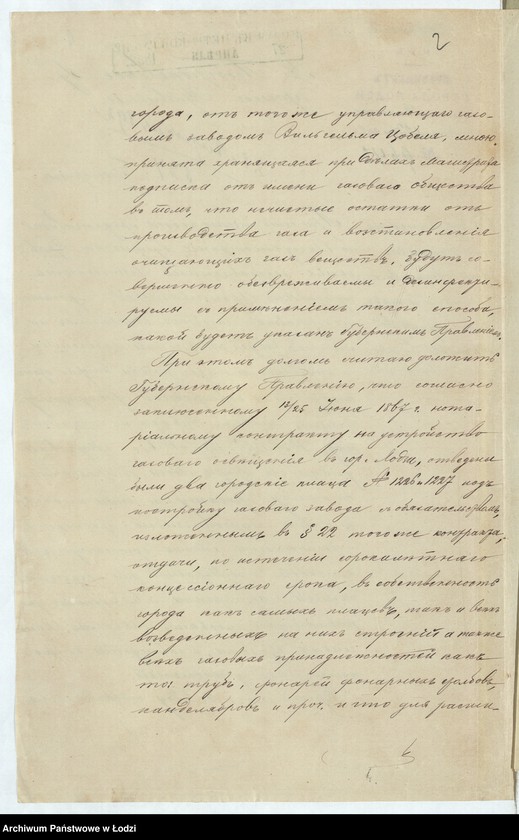 2
города, отъ того же управляющаго газо-
вымъ заводомъ Вильгельма Цобеля, мною
принята хранящаяся при дѣлахъ Магистрата
подписка отъ имени газоваго общества
въ томъ, что нечистые остатки отъ
производства газа и возстановленія
очищающихъ газъ веществъ, будутъ со-
вершенно обезвреживаемы и дезинфекци-
руемы съ примѣненіемъ такого способа,
какой будетъ указанъ Губернскимъ Правленіемъ.
При этомъ долгомъ считаю доложить
Губернскому Правленію, что согласно
заключенному 13/25 Іюня 1867 г. нота-
ріальному контракту на устройство
газоваго освѣщенія въ гор. Лодзи, отведены
были два городскіе плаца № 1226 и 1227 подъ
постройку газоваго завода съ обязательствомъ,
изложеннымъ въ § 22 того же контракта,
отдачи, по истеченіи сорокалѣтняго
концессіоннаго срока, въ собственность
города какъ самыхъ плацевъ, такъ и всѣхъ
возведенныхъ на нихъ строеній а также
всѣхъ газовыхъ принадлежностей какъ
то: трубъ, фонарей фонарныхъ столбовъ,
канделябровъ и проч. и что для расши-
Archiwum Państwowe w Łodzi